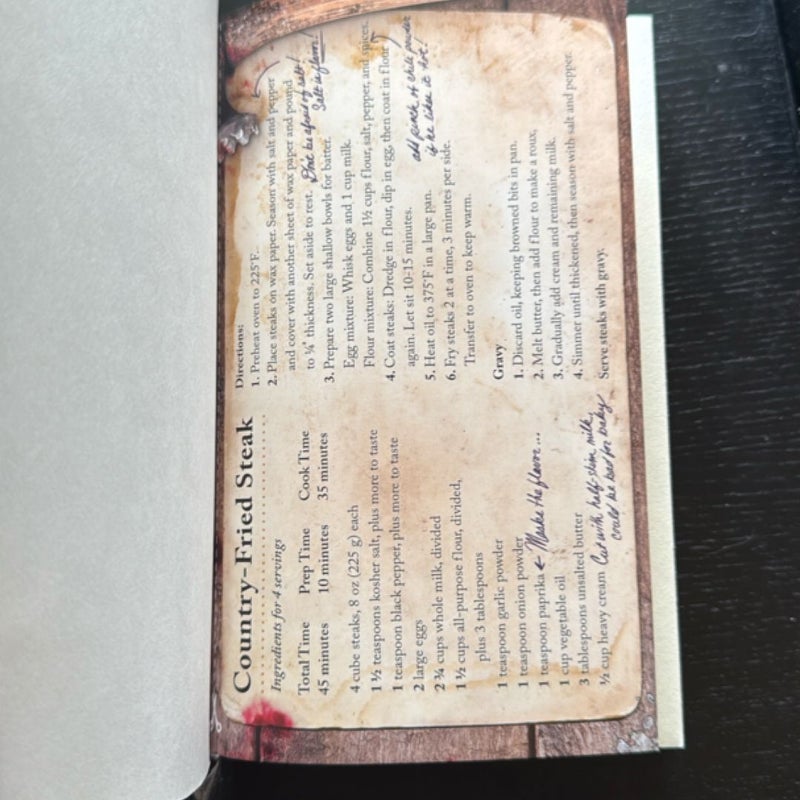 Country-Fried Steak
Ingredients for 4 servings
Total Time Prep Time Cook Time
45 minutes 10 minutes 35 minutes
4 cube steaks, 8 oz (225 g) each
1 ½ teaspoons kosher salt, plus more to taste
1 teaspoon black pepper, plus more to taste
2 large eggs
2 ¾ cups whole milk, divided
1 ½ cups all-purpose flour, divided,
plus 3 tablespoons
1 teaspoon garlic powder
1 teaspoon onion powder
1 teaspoon paprika ← Makes the flavor...
1 cup vegetable oil
3 tablespoons unsalted butter
½ cup heavy cream Cut with half-skim milk,
could be bad for baby
Directions:
1. Preheat oven to 225°F.
2. Place steaks on wax paper. Season with salt and pepper
and cover with another sheet of wax paper and pound
to ¼" thickness. Set aside to rest. Don't be afraid of salt!
Salt is flavor!
3. Prepare two large shallow bowls for batter.
Egg mixture: Whisk eggs and 1 cup milk.
Flour mixture: Combine 1½ cups flour, salt, pepper, and spices.
4. Coat steaks: Dredge in flour, dip in egg, then coat in flour
again. Let sit 10-15 minutes.
add pinch of chili powder
if he likes it hot!
5. Heat oil to 375°F in a large pan.
6. Fry steaks 2 at a time, 3 minutes per side.
Transfer to oven to keep warm.
Gravy
1. Discard oil, keeping browned bits in pan.
2. Melt butter, then add flour to make a roux.
3. Gradually add cream and remaining milk.
4. Simmer until thickened, then season with salt and pepper.
Serve steaks with gravy.